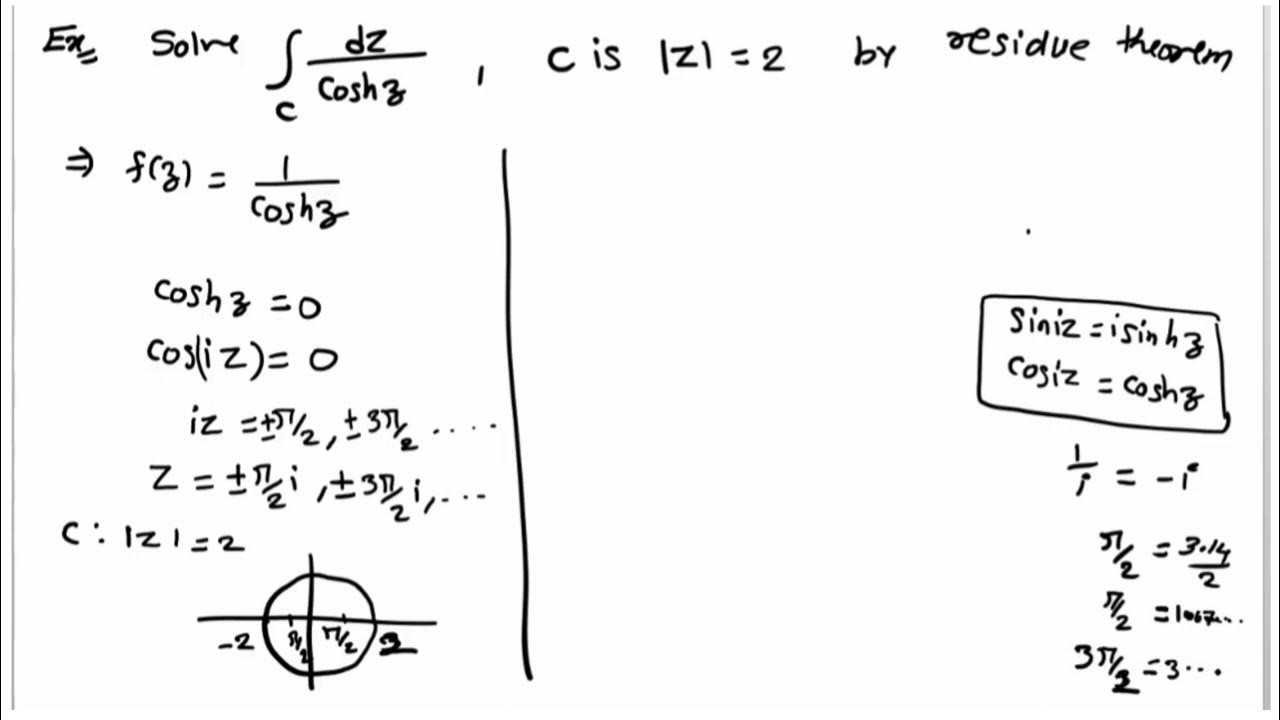 Ex Solve ∫_C dz/coshz , C is |z| = 2 by residue theorem
⇒ f(z) = 1/coshz
coshz = 0
cos(iz) = 0
iz = ±π/2, ±3π/2 .....
z = ±π/2 i, ±3π/2 i, ...
C: |z| = 2
-2 π/2 π/2
siniz = isinhz
cosiz = coshz
1/i = -i
π/2 = 3.14/2
π/2 =
3π/2 = 3...